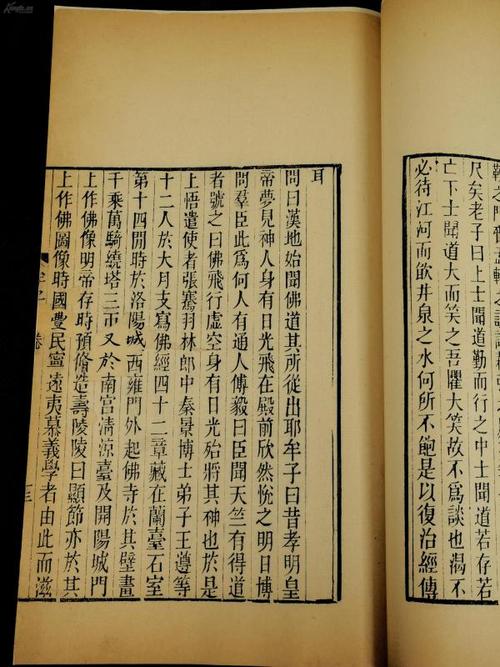 尺矣老子曰上士聞道勤而行之中士聞道若存若
亡下士聞道大而笑之吾懼大笑故不為談也渴不
必待江河而飲井泉之水何所不飽是以復治經傳
耳
問曰漢地始聞佛道其所從出耶牟子曰昔孝明皇
帝夢見神人身有日光飛在殿前欣然悅之明日博
問羣臣此為何人有通人傅毅曰臣聞天竺有得道
者號之曰佛飛行虛空身有日光殆將其神也於是
上悟遣使者張騫羽林郎中秦景博士弟子王遵等
十二人於大月支寫佛經四十二章藏在蘭臺石室
第十四閒時於洛陽城西雍門外起佛寺於其壁畫
千乘萬騎繞塔三帀又於南宮清涼臺及開陽城門
上作佛像明帝存時預脩造壽陵陵曰顯節亦於其
上作佛圖像時國豐民寧遠夷慕義學者由此而滋
牟子 卷